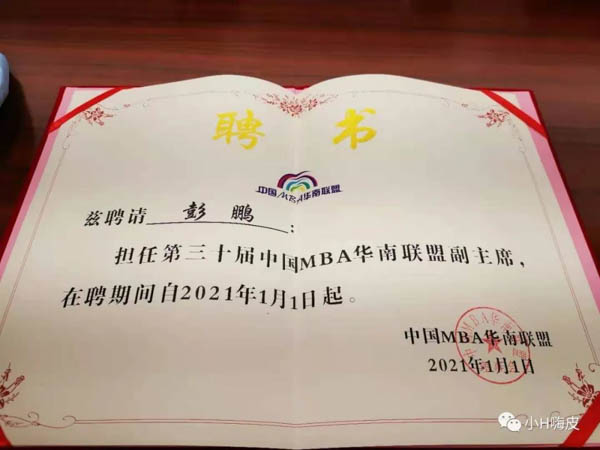 聘书
中国MBA华南联盟
兹聘请 彭鹏：
担任第三十届中国MBA华南联盟副主席，
在聘期间自2021年1月1日起。
中国MBA华南联盟
2021年1月1日
小H嗨皮